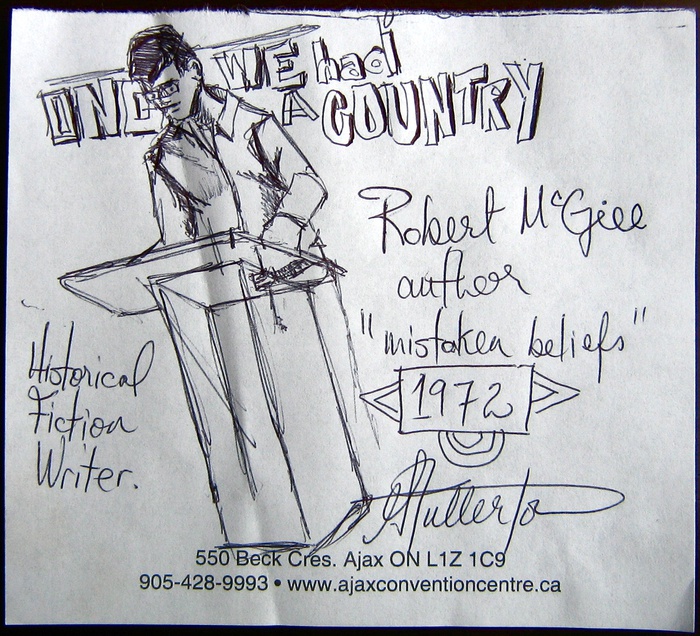 ONCE WE had
A COUNTRY
Robert McGill
author
"mistaken beliefs"
1972
Historical
Fiction
Writer.
550 Beck Cres. Ajax ON L1Z 1C9
905-428-9993 • www.ajaxconventioncentre.ca